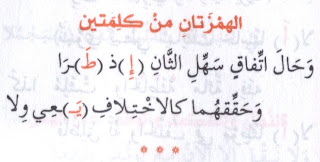 الهمْزَتانِ مِنْ كلِمَتَين
وَحَالَ اتِّفاقٍ سَهِّلِ الثَّانِ (إِ)ذ (طَ)ـرَا
وَحَقِّقْهُما كالاخْتِلافِ (يَـ)ـعِي وِلا